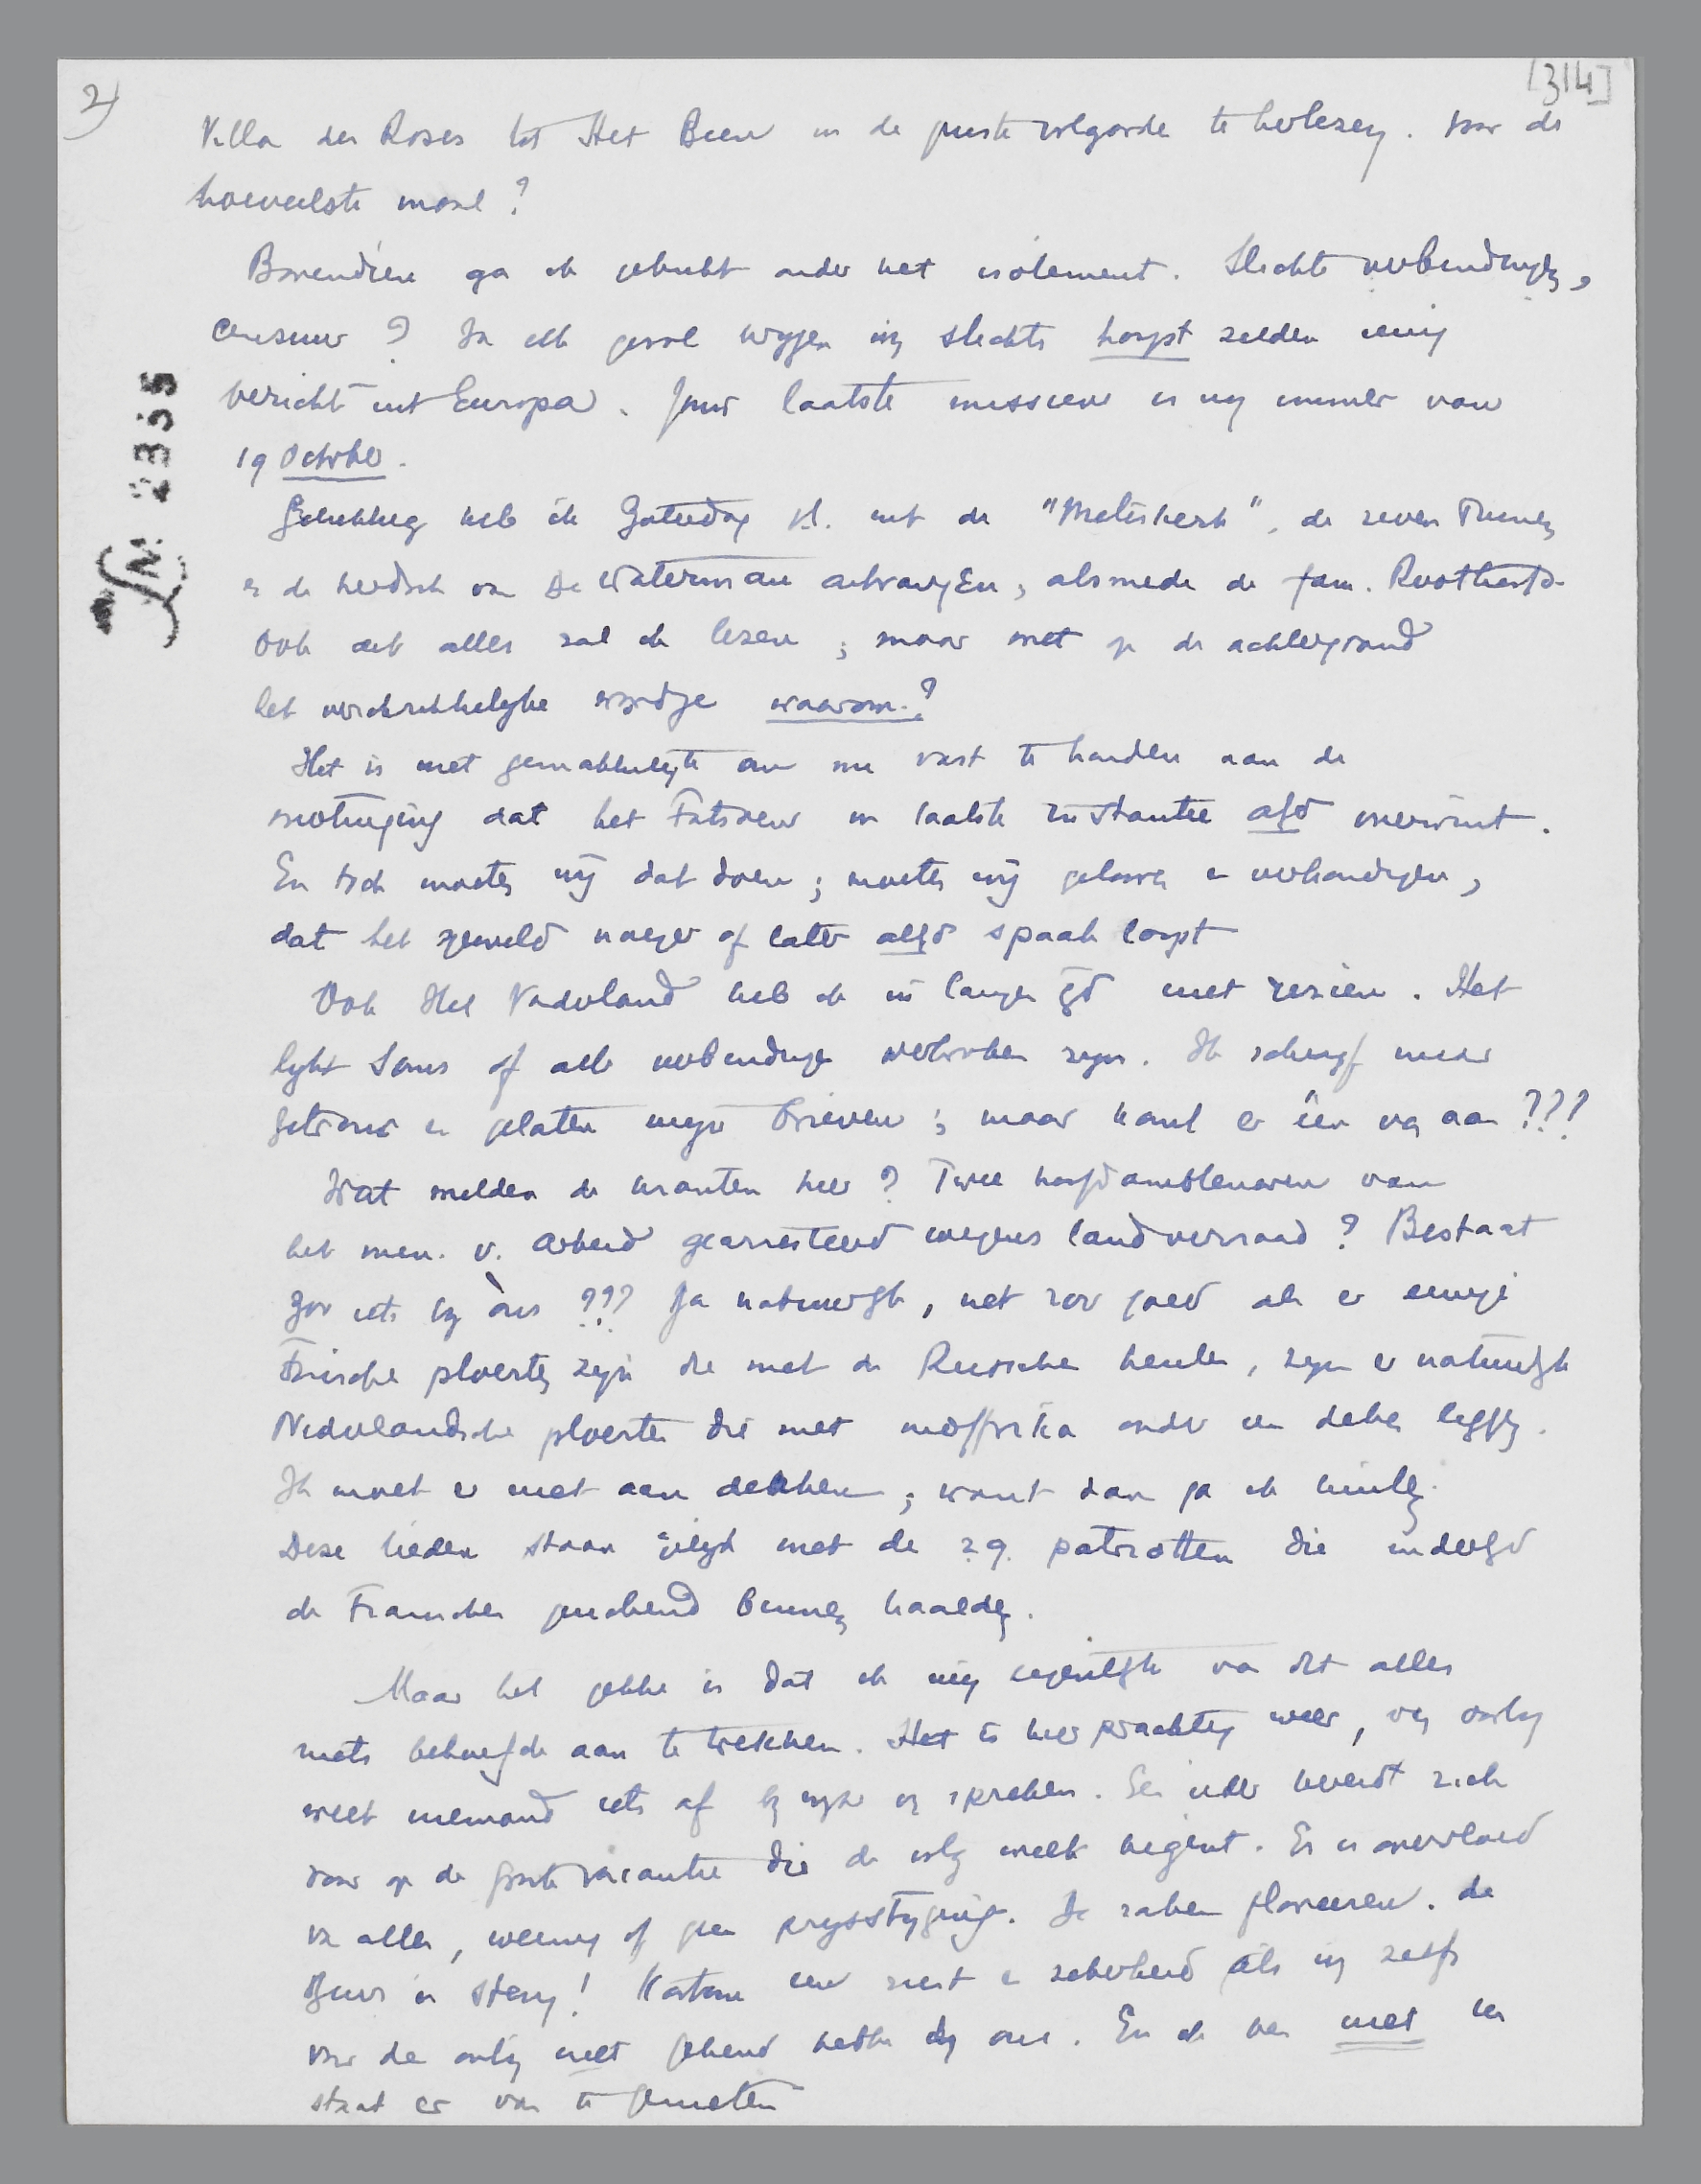 2)
[314]
Villa des Roses tot Het Been in de juiste volgorde te herlezen. Voor de
hoeveelste maal?
Bovendien ga ik gebukt onder het isolement. Slechte verbindingen,
censuur? In elk geval krijgen wij slechts hoogst zelden eenig
bericht uit Europa. Jouw laatste missieve is nog immer van
19 October.
Gelukkig heb ik Zaterdag j.l. uit de "Meliskerk", de zeven Tuinen
en de herdruk van De Waterman ontvangen, alsmede de fam. Roothooft
Ook dit alles zal ik lezen; maar met op de achtergrond
het verschrikkelijke woordje waarom?
Het is niet gemakkelijk om me vast te houden aan de
overtuiging dat het Fatsoen in laatste instantie altijd overwint.
En toch moeten wij dat doen; moeten wij gelooven en verkondigen,
dat het geweld vroeger of later altijd spaak loopt
Ook Het Vaderland heb ik in langen tijd niet gezien. Het
lijkt soms of alle verbindingen verbroken zijn. Ik schrijf maar
getrouw en gelaten mijn brieven; maar komt er één van aan???
Wat melden de kranten hier? Twee hoofdambtenaren van
het min. v. Arbeid gearresteerd wegens landverraad? Bestaat
zoo iets bij òns??? Ja natuurlijk, net zoo goed als er eenige
Finsche ploerten zijn die met de Russen heulen, zijn er natuurlijk
Nederlandsche ploerten die met moffrika onder een deken liggen.
Ik moet er niet aan denken; want dan ga ik huilen.
Deze lieden staan gelijk met de z.g. patriotten die indertijd
de Franschen juichend binnen haalden.
Maar het gekke is dat ik mij eigenlijk van dit alles
niets behoefde aan te trekken. Het is hier prachtig weer, van oorlog
weet niemand iets af bij wijze van spreken. En ieder bereidt zich
voor op de groote vacantie die de volg. week begint. Er is overvloed
van alles, weinig of geen prijsstijging. De zaken floreeren. de
Beurs is stevig! Kortom een rust en zekerheid als wij zelfs
voor de oorlog niet gekend hebben bij ons. En ik ben niet in
staat er van te genieten